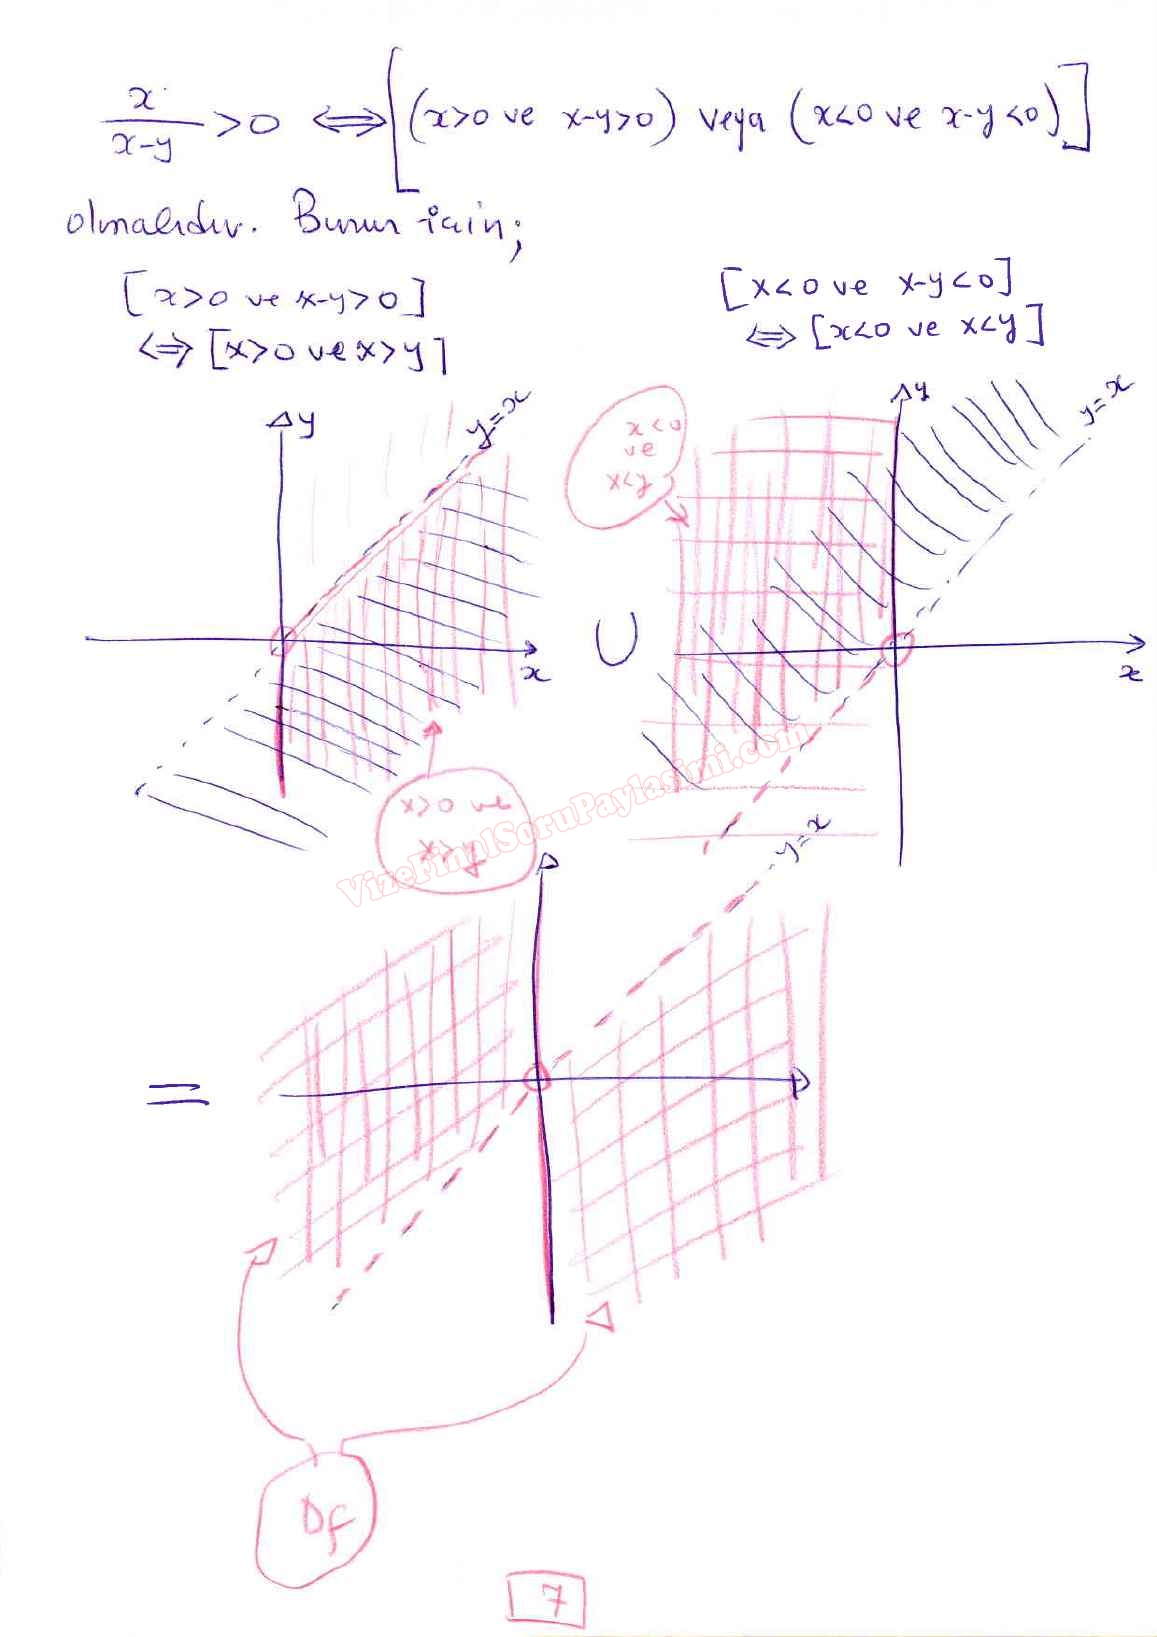 x/(x-y) > 0 ⇔ [(x>0 ve x-y>0) veya (x<0 ve x-y<0)]
olmalıdır. Bunun için;
[x>0 ve x-y>0]
⇔ [x>0 ve x>y]
[x<0 ve x-y<0]
⇔ [x<0 ve x<y]
y
y=x
x
x>0 ve
x>y
∪
x<0
ve
x<y
y
y=x
x
VizeFinalSoruPaylasimi.com
=
y=x
Df
7